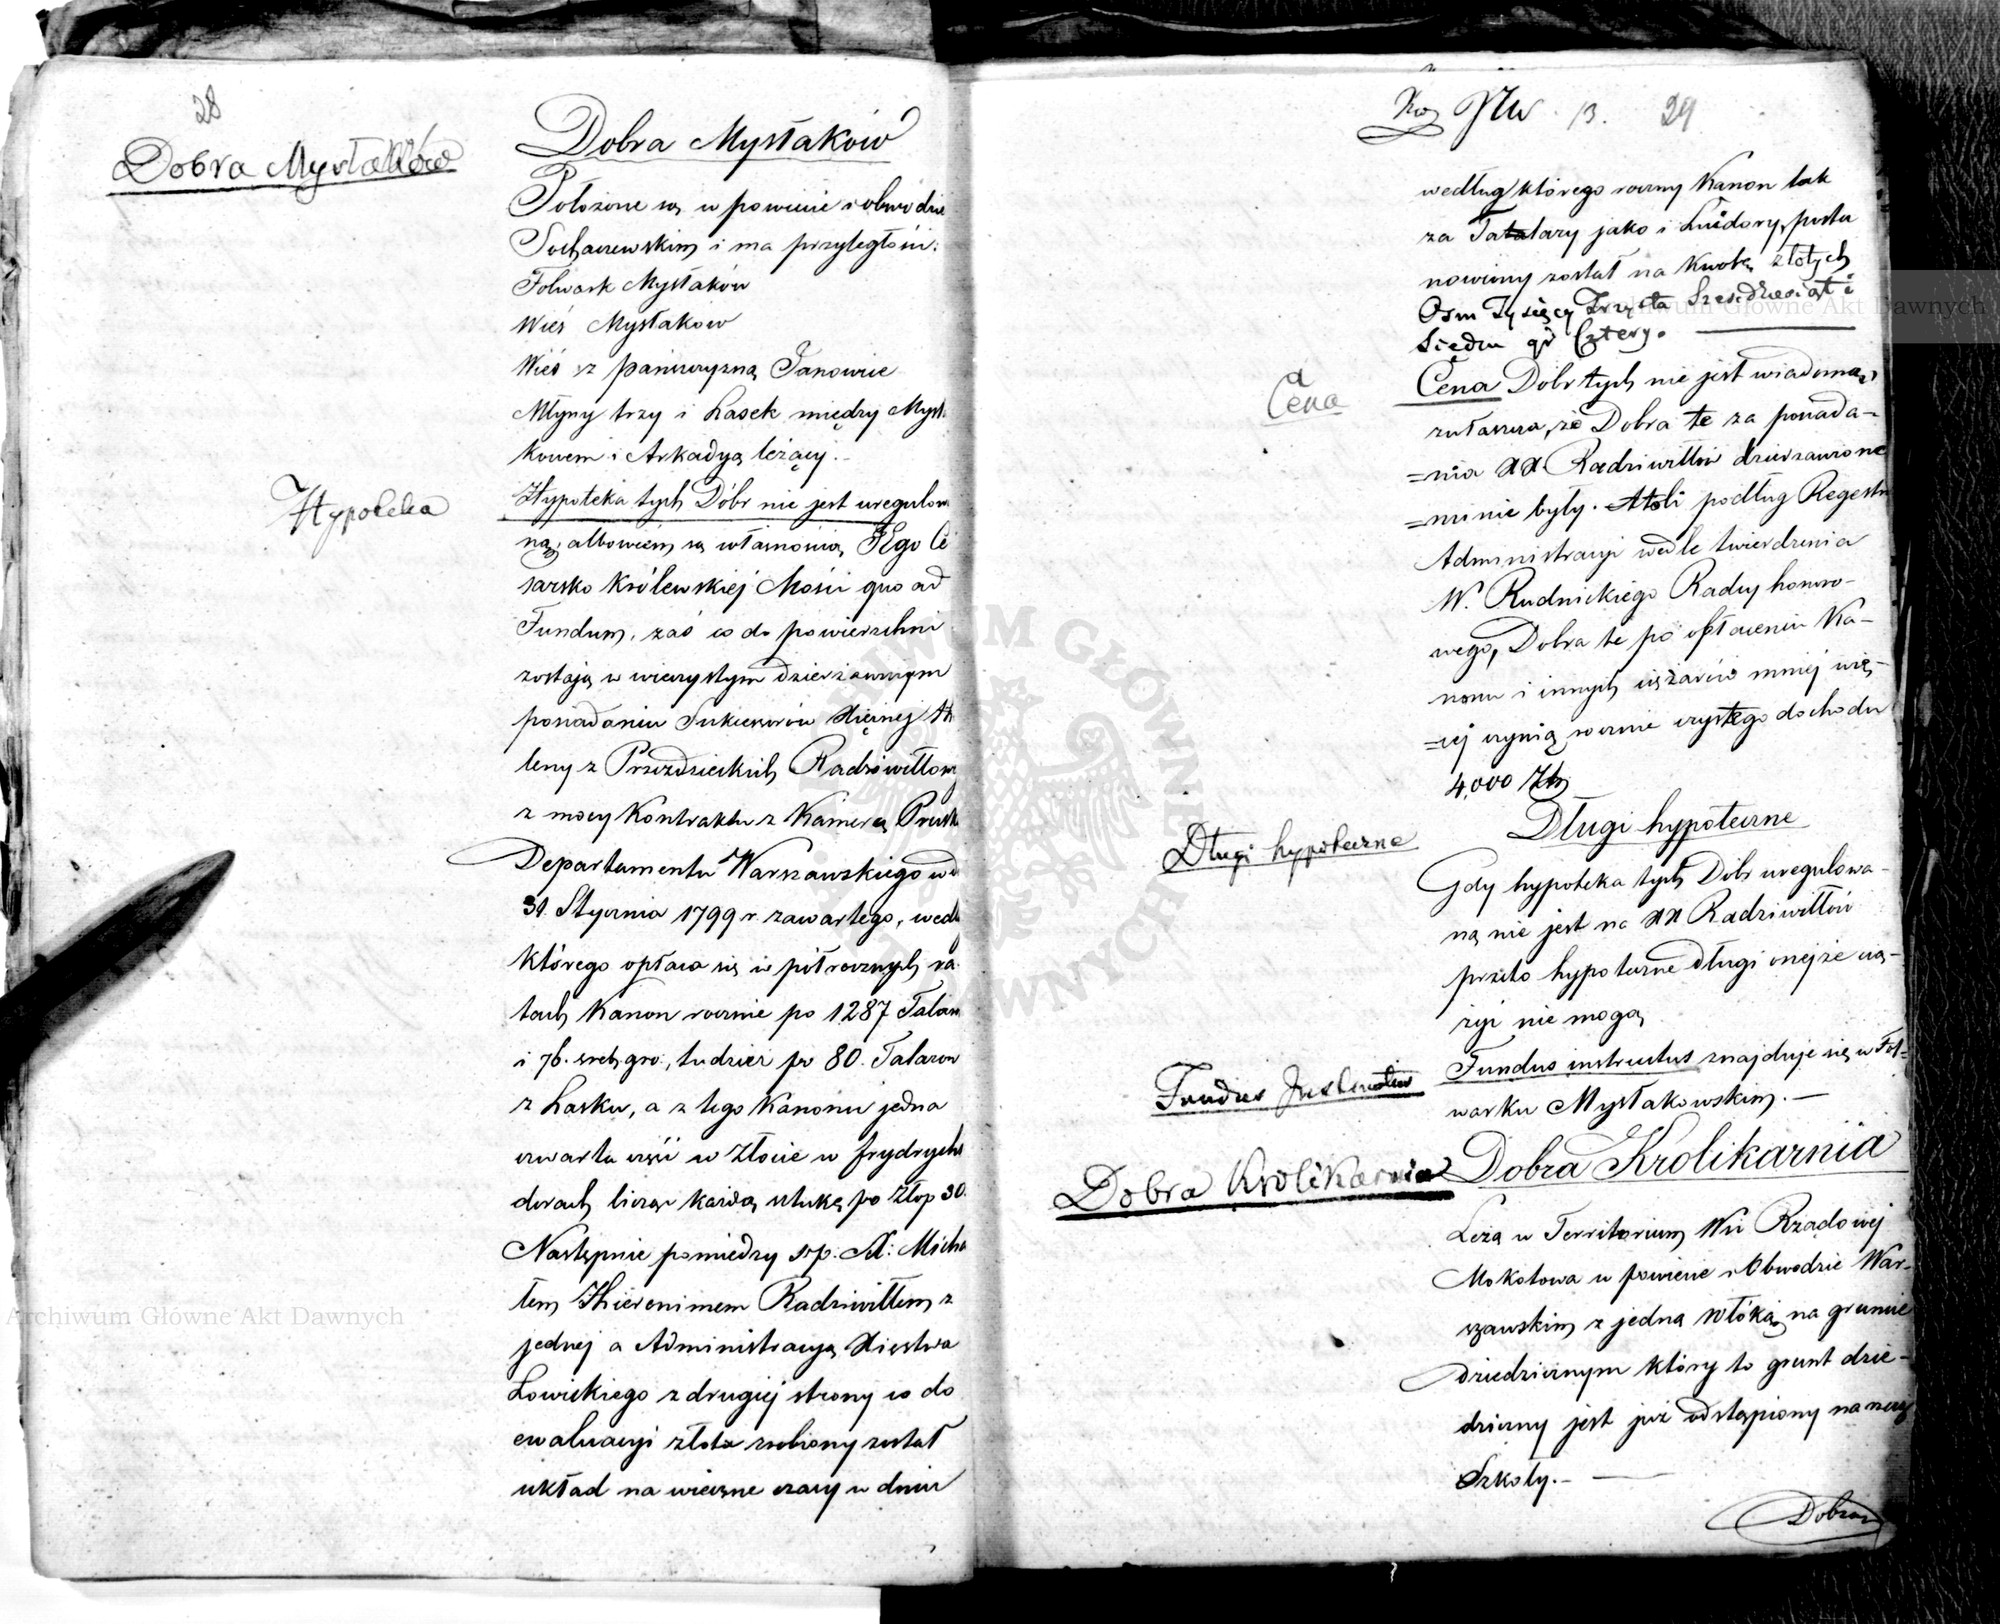 28
Dobra Mysłaków
Dobra Mysłaków
Położone są w powiecie i obwodzie
Sochaczewskim i ma przyległości:
Folwark Mysłaków
Wieś Mysłakow
Wieś z pańszczyzną Janowice
Młyny trzy i Lasek między Mysła
kowem i Arkadyą leżący. –
Hypoteka
Hypoteka tych Dóbr nie jest uregulowa
ną, albowiem są własnością JEgo Ce
sarsko Królewskiej Mości quo ad
Fundum, zaś co do powierzchni
zostają w wieczystym dzierżawnym
posiadaniu Sukcesorów Xiężnej He
leny z Przezdzieckich Radziwiłłowej
z mocy Kontraktu z Kamerą Pruską
Departamentu Warszawskiego w d
31. Stycznia 1799 r. zawartego, wedł
którego opłaca się w półrocznych ra
tach Kanon rocznie po 1287 Talarów
i 76. sreb. gro:, tudzież po 80. Talarow
z Lasku, a z tego Kanonu jedna
czwarta część w złocie w frydrychs
dorach licząc każdą sztukę po Złop 30.
Następnie pomiędzy ś.p. X: Micha
łem Hieronimem Radziwiłłem z
jednej a Administracyą Xięstwa
Łowickiego z drugiej strony co do
ewaluacyi złota zrobiony został
układ na wieczne czasy w dniu
13. 29
według którego roczny Kanon tak
za Talary jako i Luidory, posta
nowiony został na kwotę złotych
Osm Tysięcy Trzysta Sześćdziesiąt i
Siedm gr Cztery.
Cena
Cena Dobr tych nie jest wiadomą,
zwłaszcza, że Dobra te za posiada=
=nia XX. Radziwiłłów dzierzawione
=mi nie były. Atoli podług Regestr
Administracyi wedle twierdzenia
W. Rudnickiego Radcy honoro-
wego, Dobra te po opłaceniu Ka-
nonu i innych ciężarów mniej wię-
=cej czynią rocznie czystego dochodu
4,000 Złp
Długi hypoteczne
Długi hypoteczne
Gdy hypoteka tych Dobr uregulowa-
ną nie jest na XX Radziwiłłów
przeto hypoteczne długi onejże cią-
żyć nie mogą
Fundus Instructus
Fundus instructus znajduje się w Fol=
warku Mysłakowskim. –
Dobra Krolikarnia
Dobra Krolikarnia
Leżą w Territorium Wsi Rządowej
Mokotowa w powiecie i Obwodzie War-
szawskim z jedną włóką na gruncie
dziedzicznym który to grunt dzie-
dziczny jest już odstąpiony na rzecz
Szkoły. –
Dobra
Archiwum Główne Akt Dawnych
Archiwum Główne Akt Dawnych